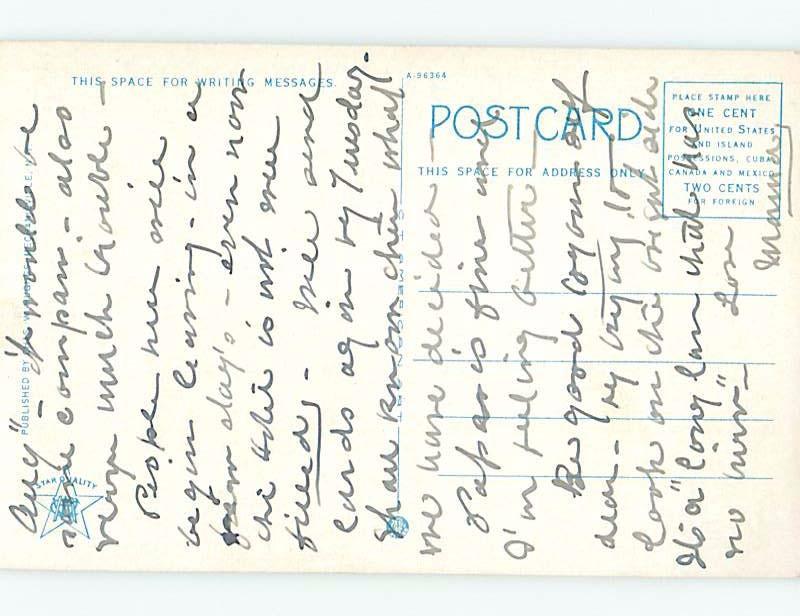 THIS SPACE FOR WRITING MESSAGES.
A-96364
POST CARD
THIS SPACE FOR ADDRESS ONLY
PLACE STAMP HERE
ONE CENT
FOR UNITED STATES
AND ISLAND
POSSESSIONS, CUBA,
CANADA AND MEXICO
TWO CENTS
FOR FOREIGN
PUBLISHED BY
STAR QUALITY
it would have
- also
very much trouble -
People here will
begin leaving - in a
few days - even now
the is not even
filled - Will send
cards again by Tuesday.
Shall know then what
we have decided -
Papa is fine and
I'm feeling better -
Be good care of
dear - try to
look on the bright side
It's a "long lane that has
no turn" - Love
Mama